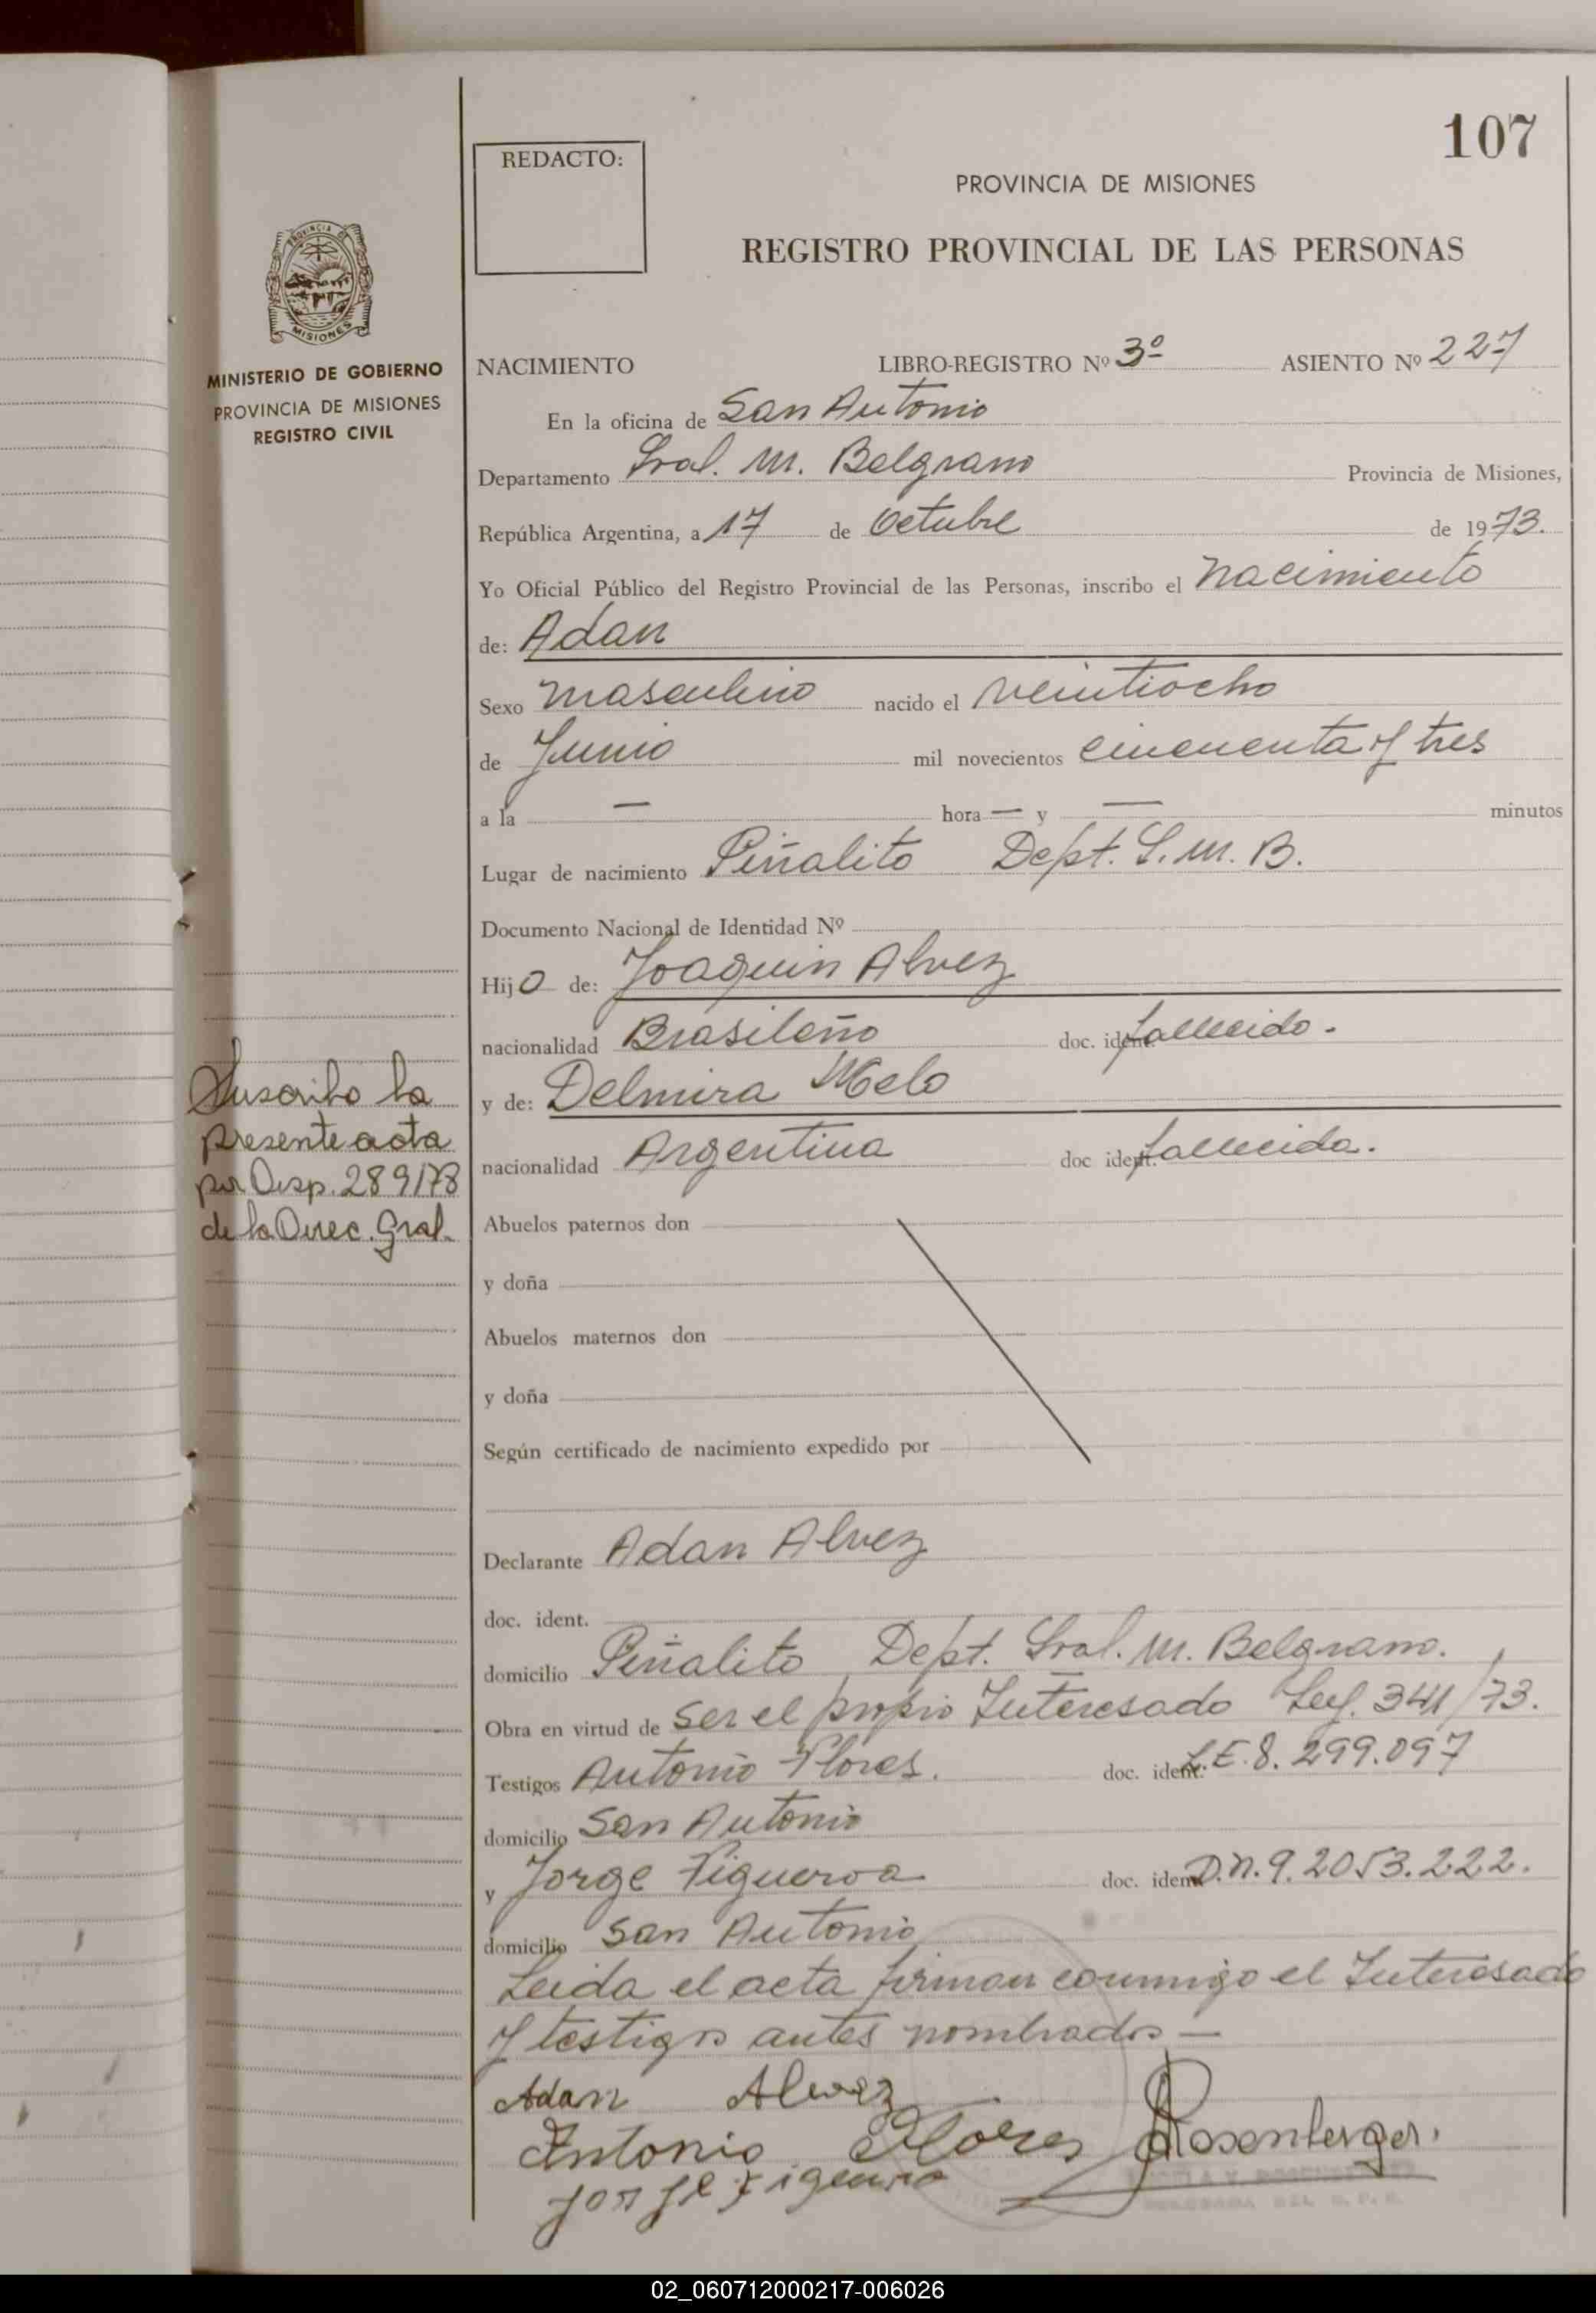 107
REDACTO:
PROVINCIA DE MISIONES
REGISTRO PROVINCIAL DE LAS PERSONAS
PROVINCIA DE
MISIONES
MINISTERIO DE GOBIERNO
PROVINCIA DE MISIONES
REGISTRO CIVIL
NACIMIENTO LIBRO-REGISTRO Nº 3º ASIENTO Nº 227
En la oficina de San Antonio
Departamento Gral. M. Belgrano Provincia de Misiones,
República Argentina, a 17 de Octubre de 1973.
Yo Oficial Público del Registro Provincial de las Personas, inscribo el nacimiento
de: Adan
Sexo masculino nacido el veintiocho
de Junio mil novecientos cincuenta y tres
a la — hora — y — minutos
Lugar de nacimiento Piñalito Dept. G. M. B.
Documento Nacional de Identidad Nº
Hijo de: Joaquin Alvez
nacionalidad Brasileño doc. ident. fallecido.
y de: Delmira Melo
nacionalidad Argentina doc ident. fallecida.
Suscribo la
presente acta
por Disp. 289/78
de la Direc. Gral.
Abuelos paternos don
y doña
Abuelos maternos don
y doña
Según certificado de nacimiento expedido por
Declarante Adan Alvez
doc. ident.
domicilio Piñalito Dept. Gral. M. Belgrano.
Obra en virtud de ser el propio Interesado Ley. 341/73.
Testigos Antonio Flores. doc. ident. L.E. 8.299.097
domicilio San Antonio
y Jorge Figueroa doc. ident. D.N.9.2053.222.
domicilio San Antonio
Leida el acta firman conmigo el Interesado
y testigos antes nombrados —
Adan Alvez
Antonio Flores Rosenberger.
Jorge Figueroa
02_060712000217-006026